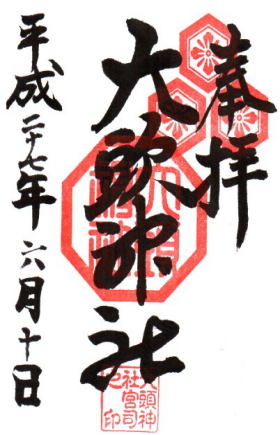 奉拝
大頭神社
平成二十七年六月十日
大頭
神社
大頭神
社宮司
之印